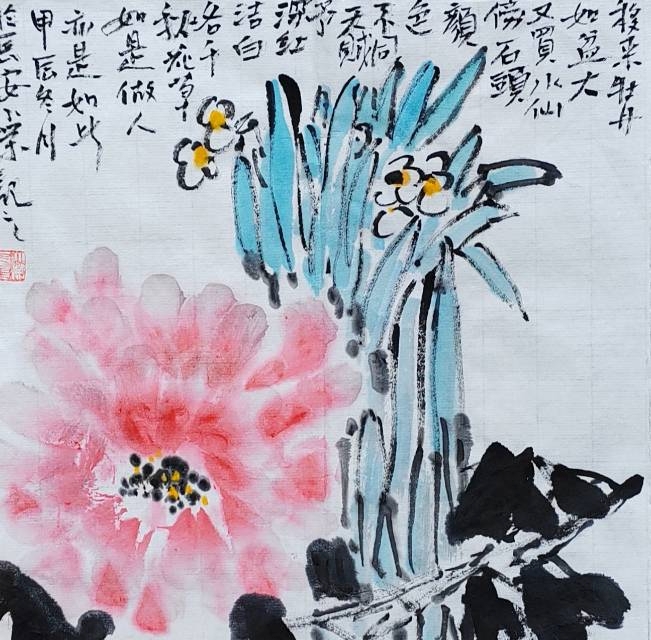 移来牡丹
如盆大
又買水仙
傍石頭
顏
色
不同
天賦予
深紅
洁白
各千
秋花草
如是做人
亦是如此
甲辰冬月
於長安